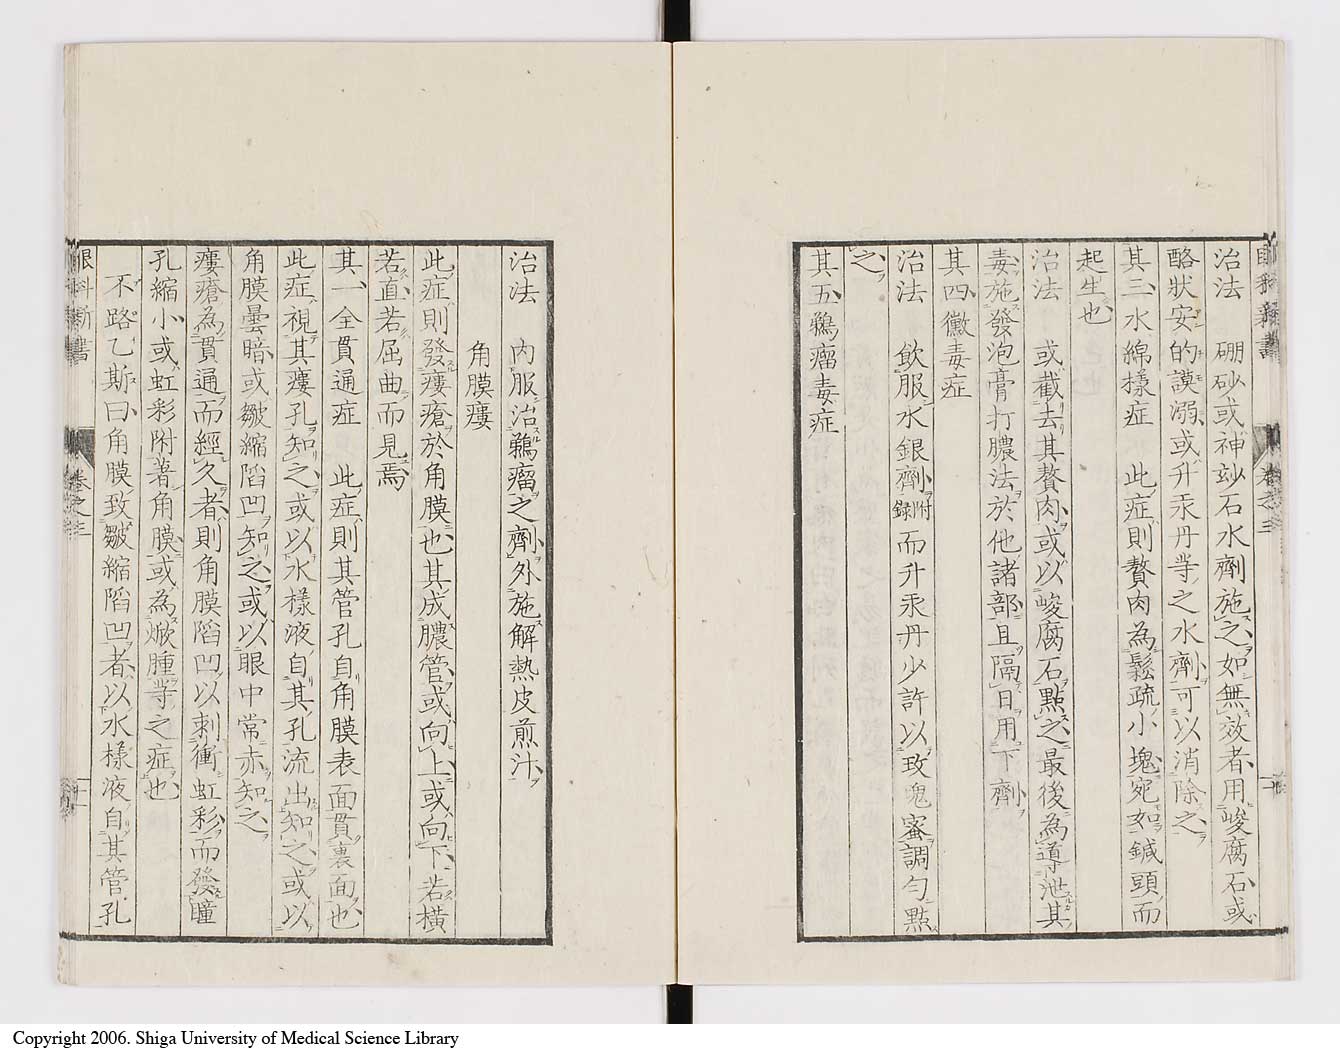 治法 硼砂或神妙石水劑施之如無效者用峻腐石或
酪狀安的謨溺或升汞丹等之水劑可以消除之
其三水綿樣症 此症則贅肉為鬆疏小塊宛如鍼頭而
起生也
治法 或截去其贅肉或以峻腐石點之最後為導泄其
毒施發泡膏打膿法於他諸部且隔日用下劑
其四黴毒症
治法 飲服水銀劑附錄而升汞丹少許以玫瑰蜜調勻點
之
其五鵜瘤毒症
治法 內服治鵜瘤之劑外施解熱皮煎汁
角膜瘻
此症則發瘻瘡於角膜也其成膿管或向上或向下若橫
若直若屈曲而見焉
其一全貫通症 此症則其管孔自角膜表面貫裏面也
此症視其瘻孔知之或以水樣液自其孔流出知之或以
角膜曇暗或皺縮陷凹知之或以眼中常赤知之
瘻瘡為貫通而經久者則角膜陷凹以刺衝虹彩而發瞳
孔縮小或虹彩附著角膜或為焮腫等之症也
不路乙斯曰角膜致皺縮陷凹者以水樣液自其管孔
眼科新書
卷之三
卷之三
Copyright 2006. Shiga University of Medical Science Library